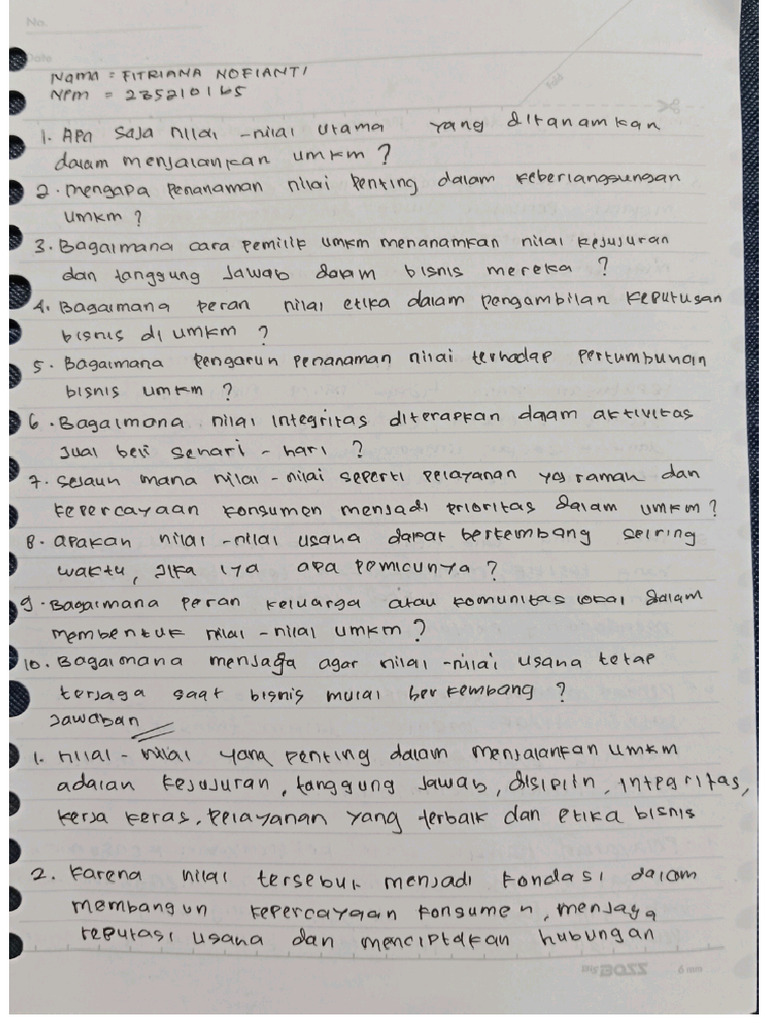 No.
Date
Nama = FITRIANA NOFIANTI
NPM = 235210165
1. Apa saja nilai - nilai utama yang ditanamkan
dalam menjalankan umkm ?
2. mengapa penanaman nilai penting dalam keberlangsungan
umkm ?
3. Bagaimana cara pemilik umkm menanamkan nilai kejujuran
dan tanggung jawab dalam bisnis mereka ?
4. Bagaimana peran nilai etika dalam pengambilan keputusan
bisnis di umkm ?
5. Bagaimana pengaruh penanaman nilai terhadap pertumbuhan
bisnis umkm ?
6. Bagaimana nilai integritas diterapkan dalam aktivitas
jual beli sehari - hari ?
7. sejauh mana nilai - nilai seperti pelayanan yg ramah dan
kepercayaan konsumen menjadi prioritas dalam umkm ?
8. apakah nilai - nilai usaha dapat berkembang seiring
waktu, jika iya apa pemicunya ?
9. Bagaimana peran keluarga atau komunitas lokal dalam
membentuk nilai - nilai umkm ?
10. Bagaimana menjaga agar nilai - nilai usaha tetap
terjaga saat bisnis mulai berkembang ?
Jawaban
1. nilai - nilai yang penting dalam menjalankan umkm
adalah kejujuran, tanggung jawab, disiplin, integritas,
kerja keras, pelayanan yang terbaik dan etika bisnis
2. Karena nilai tersebut menjadi fondasi dalam
membangun kepercayaan konsumen, menjaga
reputasi usaha dan menciptakan hubungan
BOSS 6 mm